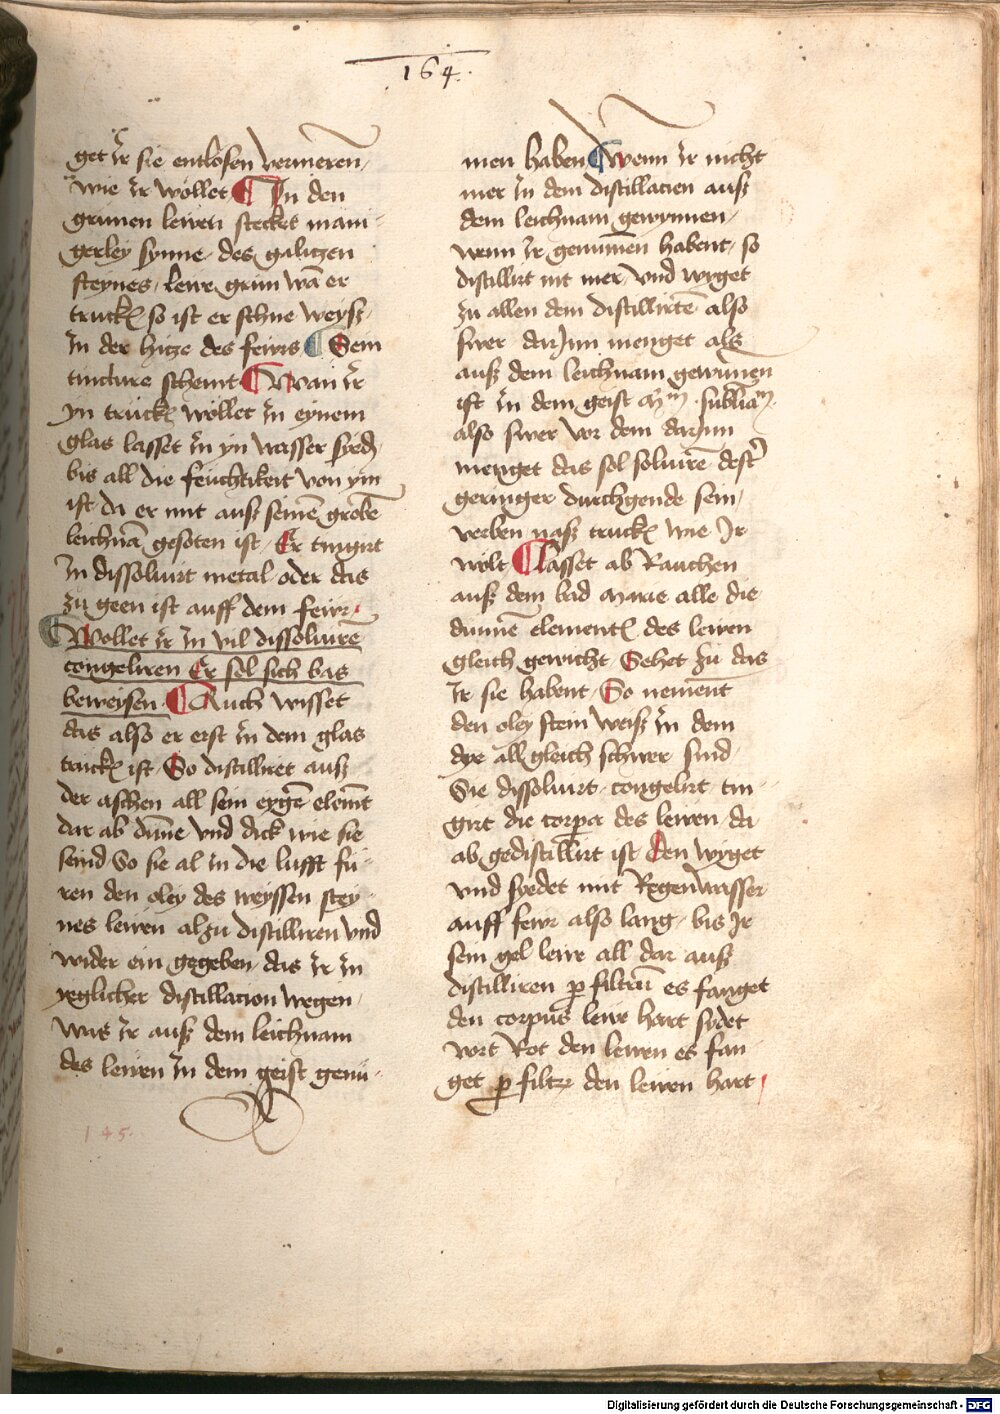 164.
get ir sie entlosen vermeren
wie ir wöllet In den
grunen lewen stecket mani
gerley synne des galiczen
steynes lewe grun wā er
truckē so ist er schne weysz
in der hicze des fewrs Sein
tincture scheint Wan ir
yn truckē wöllet in eynem
glas lasset in yn wasser syedē
bis all die feuchtikeit von ym
ist da er mit ausz seinē grobē
leichnā gesoten ist Er tingirt
in dissoluirt metal oder das
zu geen ist auff dem fewr
Wollet ir in vil dissoluirē
congeliren Er sol sich bas
beweisen Auch wisset
das also er erst in dem glas
truckē ist So distilliret ausz
der aschen all sein eygē elemēt
dar ab dunne vnd dick wie sie
seind So sie al in die lufft fu
ren den oley des weyssen stey
nes lewen alzu distilliren vnd
wider ein gegeben das ir in
yeglicher distillacion wegen
was ir ausz dem leichnam
des lewen in dem geist genu
145.
men haben Wenn ir nicht
mer in dem distillacien ausz
dem leichnam gewynnen
wenn ir genummen habent so
distillirt nit mer vnd wyget
zu allen dem distillirtē also
swer darjnn menget als
ausz dem leichnam gewunnen
ist in dem geist
also swer vor dem darjnn
menget das sol soluirē dest
geringer durchgende sein
verben nasz truckē wie Ir
wölt Lasset ab Rauchen
ausz dem bad marie alle die
dunnē elementē des lewen
gleich gewicht Sehet zu das
ir sie habent So nement
den oley stein weisz in dem
dye all gleich schwer sind
Sie dissoluirt congelirt tin
girt die corpora des lewen da
ab gedistillirt ist Den wyget
vnd syedet mit Regenwasser
auff fewr also lang bis Ir
sein gel lewe all dar ausz
distilliren p filtrū es fanget
den corpus lewe hart sydet
wirt Rot den lewen es fan
get p filtrū den lewen hart
Digitalisierung gefördert durch die Deutsche Forschungsgemeinschaft - DFG